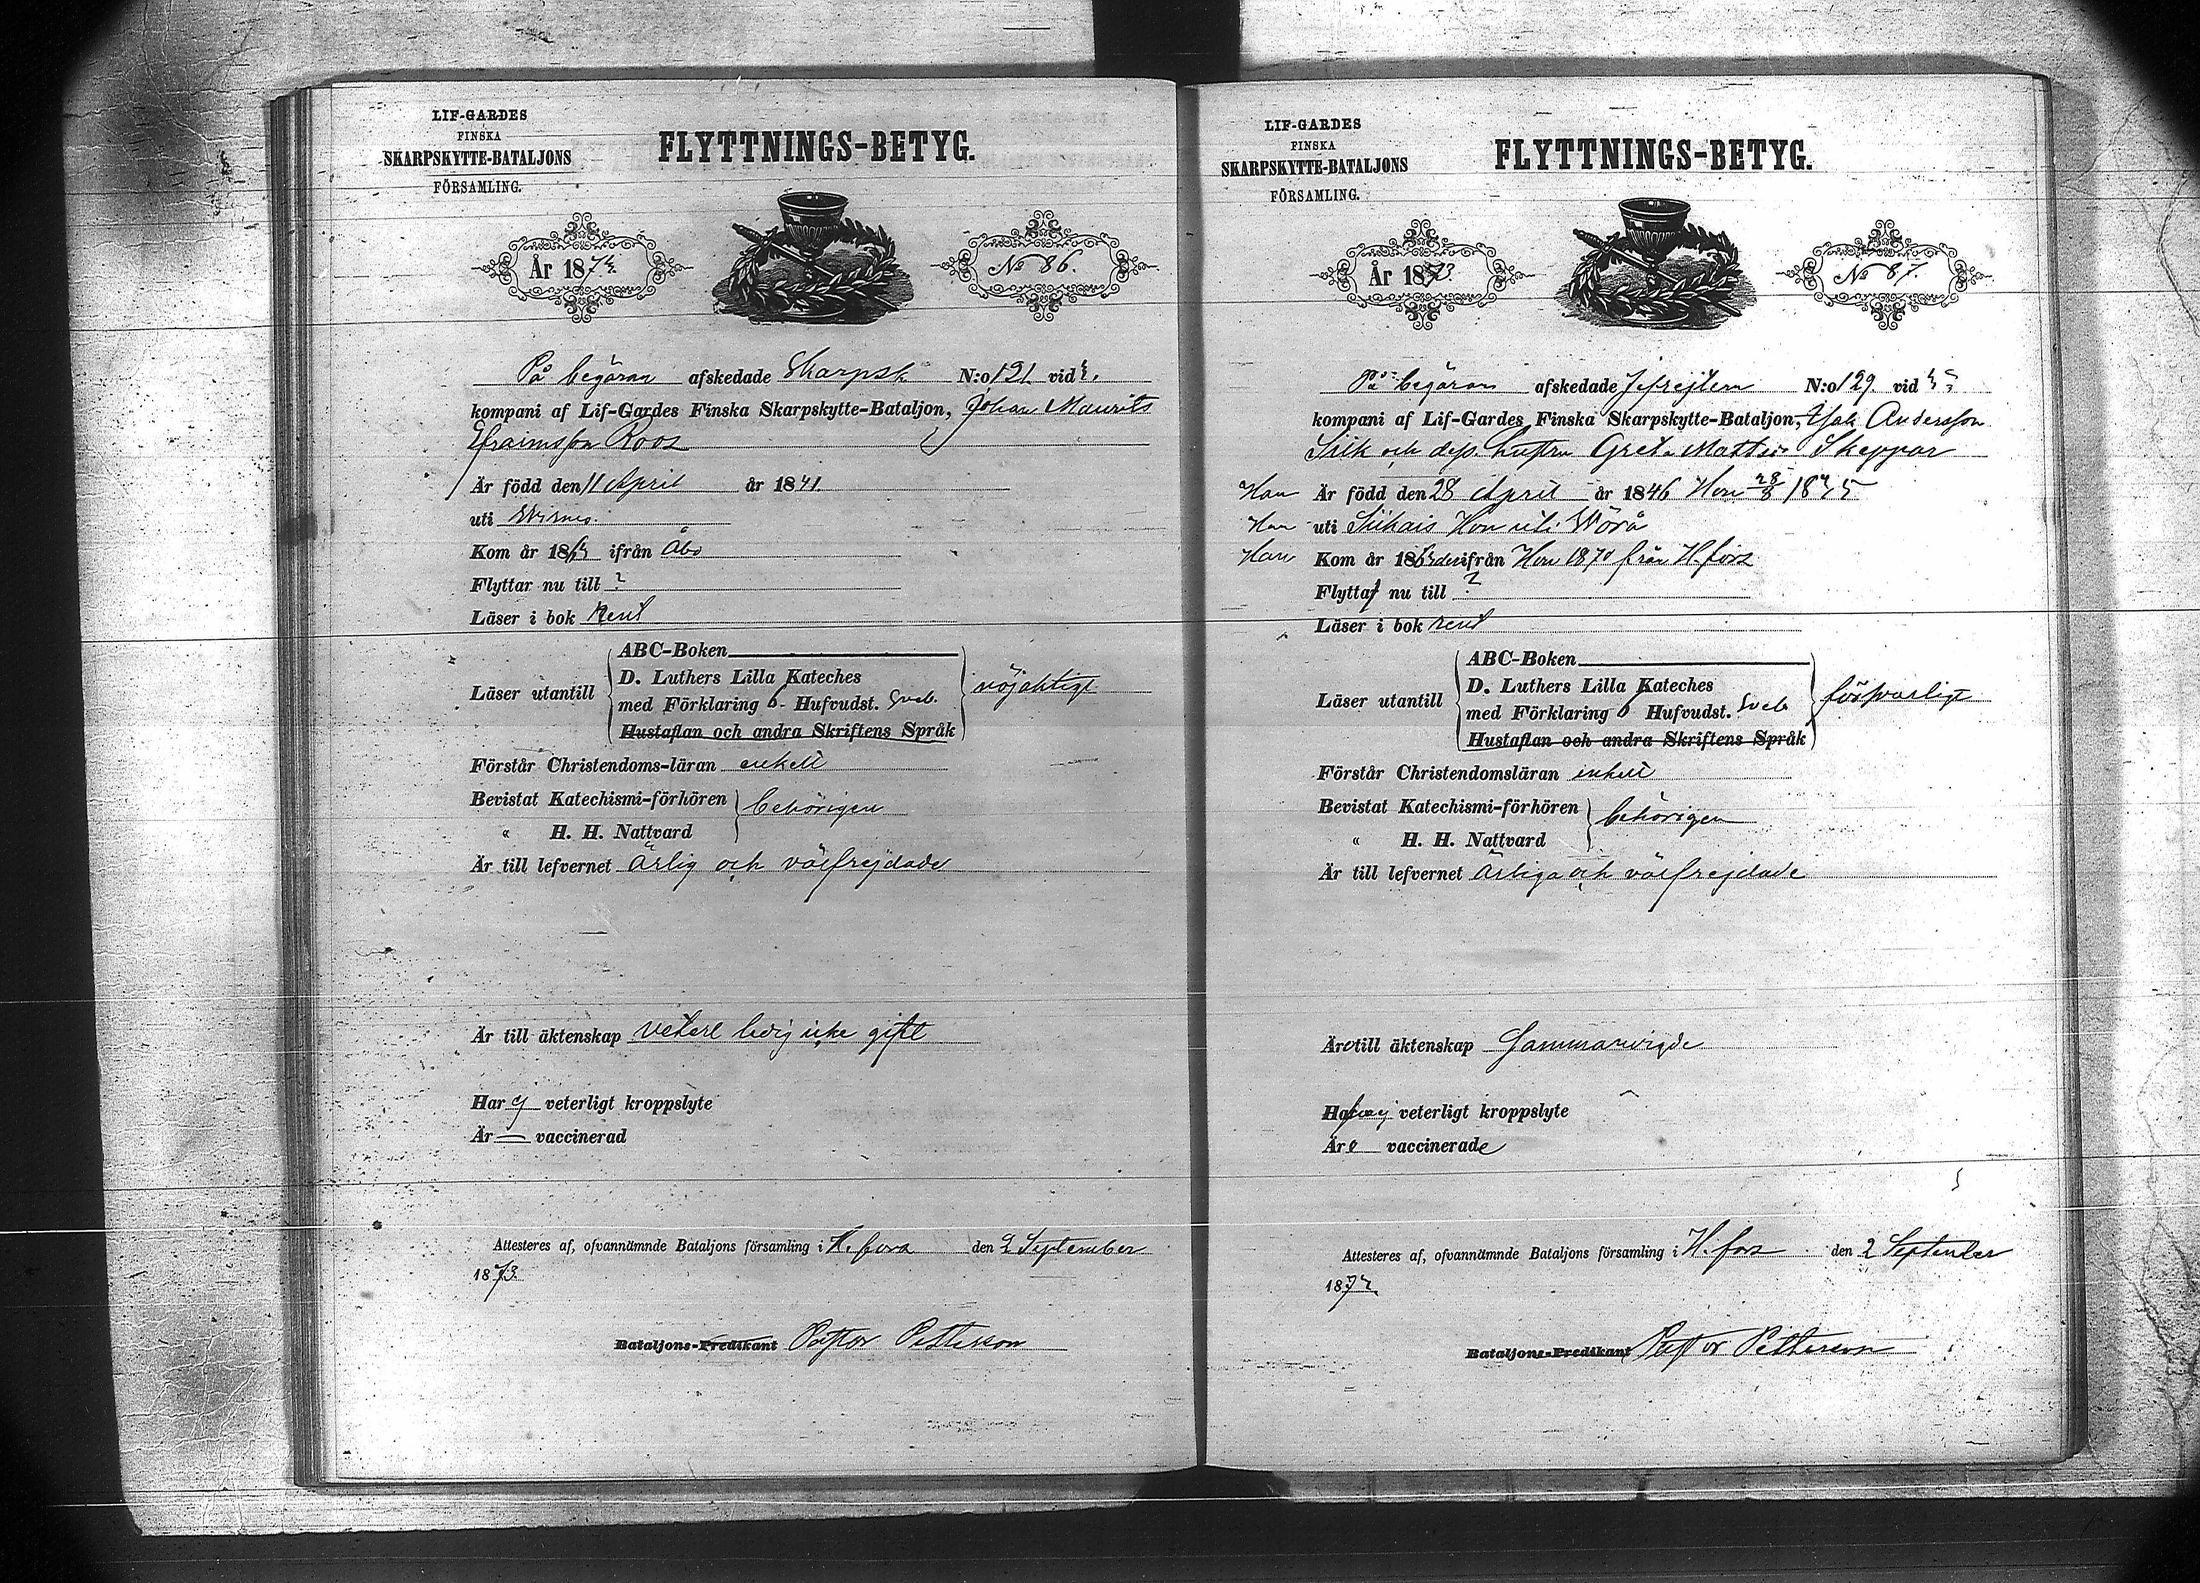 LIF-GARDES
FINSKA
SKARPSKYTTE-BATALJONS
FÖRSAMLING.
FLYTTNINGS-BETYG.
År 1873.
No 86.
På begäran afskedade Skarpsk N:o 121. vid
kompani af Lif-Gardes Finska Skarpskytte-Bataljon, Johan Maurits
Efraimsson Roos
Är född den 11 April år 1841.
uti
Kom år 186 ifrån Åbo
Flyttar nu till ?
Läser i bok Rent
ABC-Boken
D. Luthers Lilla Kateches
Läser utantill med Förklaring 6 Hufvudst. Sveb. nöjaktigt
Hustaflan och andra Skriftens Språk
Förstår Christendoms-läran enkelt
Bevistat Katechismi-förhören behörigen
" H. H. Nattvard
Är till lefvernet Ärlig och välfrejdade
Är till äktenskap veterl ledig icke gift
Har ej veterligt kroppslyte
Är — vaccinerad
Attesteres af, ofvannämnde Bataljons församling i H.fors den 2 September
1873.
Bataljons-Predikant Pastor Pettersson
LIF-GARDES
FINSKA
SKARPSKYTTE-BATALJONS
FÖRSAMLING.
FLYTTNINGS-BETYG.
År 1873.
No 87.
På begäran afskedade Jefrejtern N:o 129. vid
kompani af Lif-Gardes Finska Skarpskytte-Bataljon, Isak Andersson
Silk och dess hustru Greta Skeppar
Han Är född den 28 April år 1846 Hon 28/8 18 5
Han uti Siikais Hon uti Wörå
Han Kom år 186 ifrån Hon 1870 från H.fors
Flyttar nu till ?
Läser i bok rent
ABC-Boken
D. Luthers Lilla Kateches
Läser utantill med Förklaring 6 Hufvudst. Sveb försvarligt
Hustaflan och andra Skriftens Språk
Förstår Christendomsläran enkelt
Bevistat Katechismi-förhören behörigen
" H. H. Nattvard
Är till lefvernet Ärliga och välfrejdade
Äro till äktenskap Sammanvigde
Hafva ej veterligt kroppslyte
Äro vaccinerade
Attesteres af, ofvannämnde Bataljons församling i H.fors. den 2 September
1873.
Bataljons-Predikant Pastor Pettersson